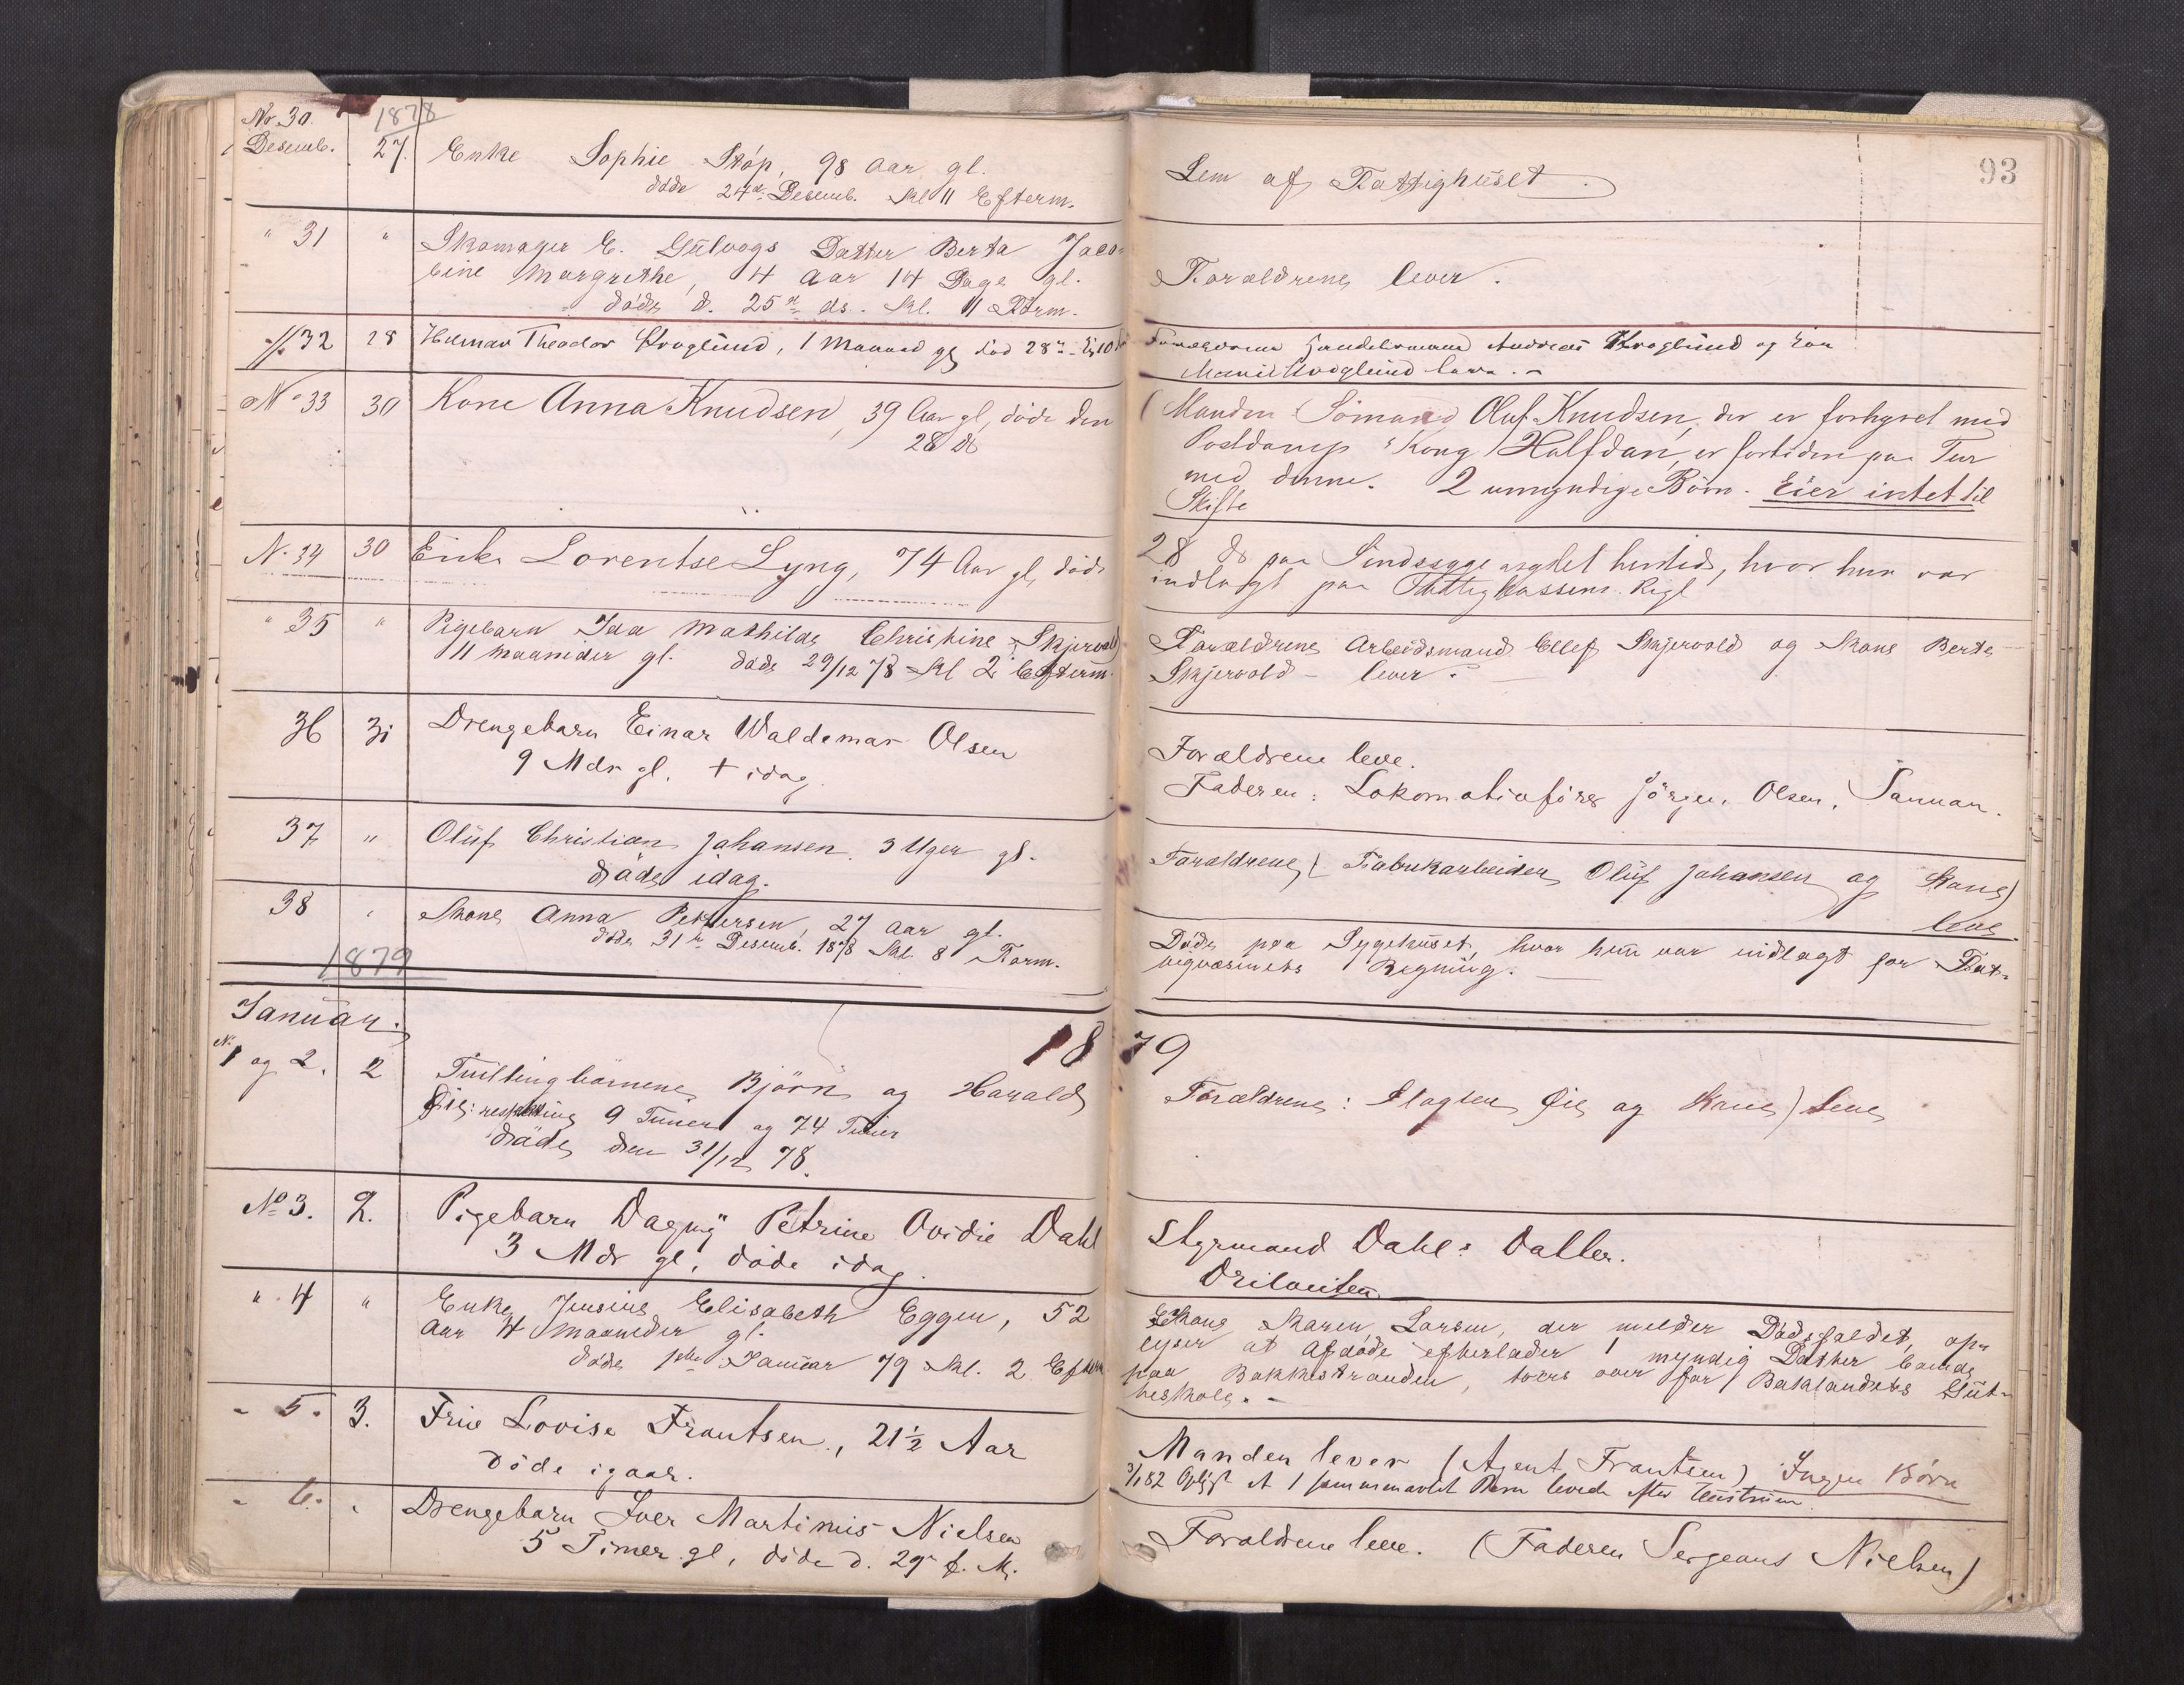 93
1878
Nr. 30.
Desemb. 27. Enke Sophie Støp, 98 Aar gl.
døde 24de Desemb. Kl 11 Efterm.
Lem af Fattighuset.
" 31 " Skomager E. Gulvogs Datter Berta Jaco-
bine Margrethe, 4 Aar 14 Dage gl.
døde d. 25de ds. Kl. 11 Form.
Forældrene lever.
32 28 Hilmar Theodor Kroglund, 1 Maaned gl død 28de
Forældrene Handelsmand Andreas Kroglund og Kone
Kroglund leve. -
No 33 30 Kone Anna Knudsen, 39 Aar gl, døde den
28 ds
(Manden Sømand Oluf Knudsen, der er forhyret med
Postdamp. "Kong Halfdan, er fortiden paa Tur
med denne. 2 umyndige Børn. Eier intet til
Skifte
N. 34 30 Enke Lorentse Lyng, 74 Aar gl, døde
28 ds paa Sindssygeasylet hersteds, hvor hun var
indlagt paa Fattigkassens Regl
" 35 " Pigebarn Ida Mathilde Christine Skjervold
11 Maaneder gl. døde 29/12 78 Kl 2 Efterm.
Forældrene Arbeidsmand Ellef Skjervold og Kone Berte
Skjervold - lever.
36 31 Drengebarn Einar Waldemar Olsen
9 Mdr gl. † idag.
Forældrene leve.
Faderen: Lokomotivfører Jørgen Olsen,
37 " Oluf Christian Johansen. 3 Uger gl.
døde idag.
Forældrene (Fabrikarbeider Oluf Johansen og Kone)
leve.
38 " Kone Anna Pettersen, 27 Aar gl.
døde 31te Desemb. 1878 Kl. 8 Form.
Døde paa Sygehuset, hvor hun var indlagt for Fat-
tigvæsenets Regning.
1879
Januar.
1879
No 1 og 2. 2 Tvillingbørnene Bjørn og Harald
Øie: 9 Timer og 74 Timer
døde den 31/12 78.
Forældrene: Slagter Øie og Kone) leve
No 3. 2. Pigebarn Dagny Petrine Ovidie Dahl
3 Mdr gl, døde idag.
Styrmand Dahls Datter.
" 4 " Enke Jensine Elisabeth Eggen, 52
Aar 4 Maaneder gl.
døde 1ste Januar 79 Kl. 2 Efterm
Kone Karen Larsen, der melder Dødsfaldet, op-
lyser at Afdøde efterlader 1 myndig Datter boende
paa Bakkestranden, tvers over for Baklandets
" 5. 3. Frue Lovise Frantsen, 21½ Aar
døde igaar.
Manden lever (Agent Frantsen) Ingen Børn
3/1 82 Oplyst at 1 sammenavlet Barn levede efter
" 6. " Drengebarn Iver Martinus Nielsen
5 Timer gl, døde d. 29 f. M.
Forældrene leve. (Faderen Sergeant Nielsen)